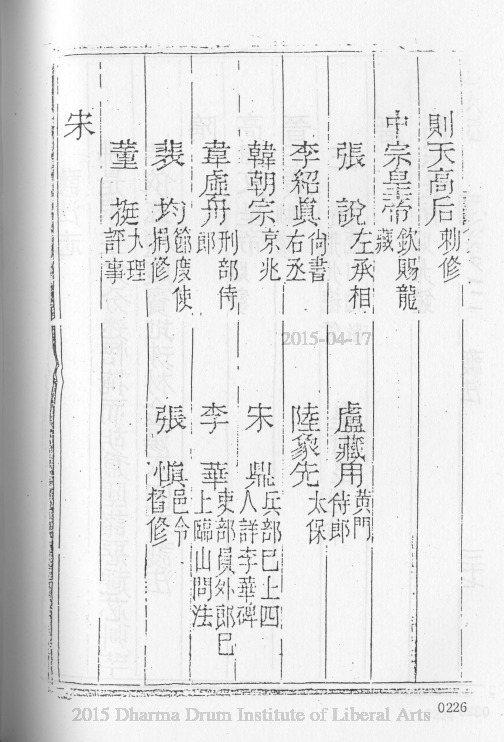 則天高后 勅修
中宗皇帝 欽賜龍藏
張說 左丞相
盧藏用 黃門侍郎
李紹眞 尙書右丞
陸象先 太保
韓朝宗 京兆
宋鼎 兵部已上四人詳李華碑
韋虛舟 刑部侍郎
李華 吏部員外郎已上臨山問法
裴均 節度使捐修
張愼 邑令督修
董挺 大理評事
宋
2015-04-17
0226
2015 Dharma Drum Institute of Liberal Arts